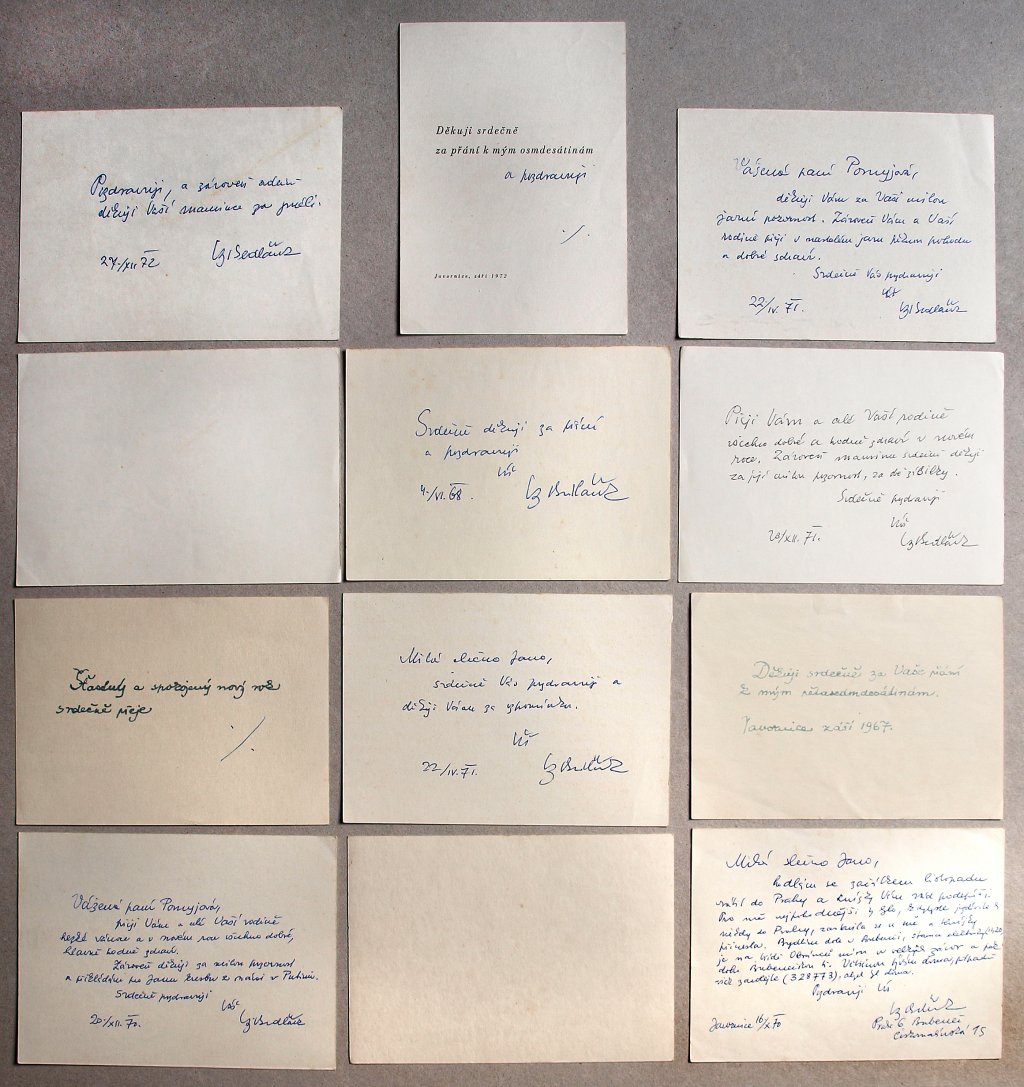 Pozdravuji, a zároveň
děkuji Vaší mamince za
27./XII. 72
Děkuji srdečně
za přání k mým osmdesátinám
a pozdravuji
Javornice, září 1972
Vážená paní Pomyjová,
děkuji Vám za Vaši milou
jarní pozornost. Zároveň Vám a Vaší
rodině přeji v nastalém jaru pohodu
a dobré zdraví.
Srdečně Vás pozdravuji
Váš
22/IV. 71. Sedláček
Srdečně děkuji za přání
a pozdravuji
Váš
4./VI. 68.
Přeji Vám a celé Vaší rodině
všecko dobré a hodně zdraví v novém
roce. Zároveň srdečně děkuji
za její milou pozornost, za
Srdečně pozdravuji
Váš
20/XII. 71. Sedláček
Šťastný a spokojený nový rok
srdečně přeje
Milá slečno Jano,
srdečně Vás pozdravuji a
děkuji Vám za vzpomínku.
Váš
22/IV. 71.
Děkuji srdečně za Vaše přání
k mým pětasedmdesátinám.
Javornice září 1967.
Vážená paní Pomyjová,
přeji Vám a celé Vaší rodině
hezké vánoce a v novém roce všechno dobré,
hlavně hodně zdraví.
Zároveň děkuji za milou pozornost
a přikládám pro Janu kresbu
Srdečně pozdravuji
Váš
20./XII. 70.
Milá slečno Jano,
hodlám se začátkem listopadu
vrátit do Prahy a knížky Vám rád podepíši.
Pro mne nejpohodlnější by bylo,
do Prahy, u mne a knížky
přinesla. Bydlím dole v Bubenči,
(328773),
Pozdravuji Váš
Javornice 16/X 70
Praha 6, Bubeneč
15